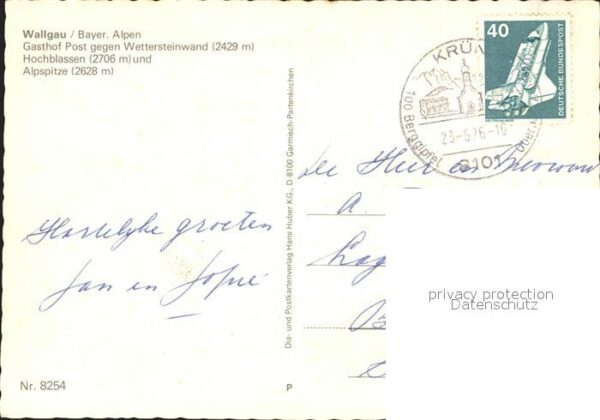 Wallgau / Bayer. Alpen
Gasthof Post gegen Wettersteinwand (2429 m)
Hochblassen (2706 m) und
Alpspitze (2628 m)
40
DEUTSCHE BUNDESPOST
KRÜN
100 Berggipfel
23-6.76-10
8101
De Heer en Mevrouw
A.
Hartelyke groeten
Jan en Jopie
Dia- und Postkartenverlag Hans Huber KG., D-8100 Garmisch-Partenkirchen
privacy protection
Datenschutz
Nr. 8254
P